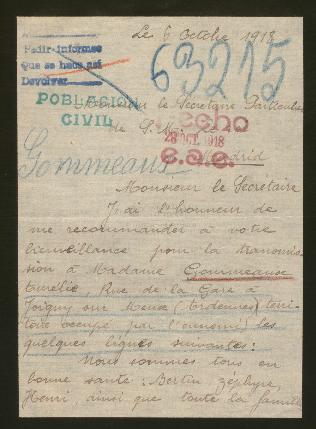 Le 6 Octobre 1918
Pedir-informes
Que se haga así
Devolver
63215
POBLACION
CIVIL
Monsieur le Secrétaire Particulier
de S. M.
echo
28 OCT. 1918
e.a.e.
Madrid
Gommeaux
Monsieur le Secrétaire
J'ai l'honneur de
me recommander à votre
bienveillance pour la transmis-
sion à Madame Gommeaux
Aurélie, Rue de la Gare à
Joigny sur Meuse (Ardennes) terri-
toire occupé par l'ennemi) les
quelques lignes suivantes:
Nous sommes tous en
bonne santé: Bertin, Zéphyr,
Henri, ainsi que toute la famille